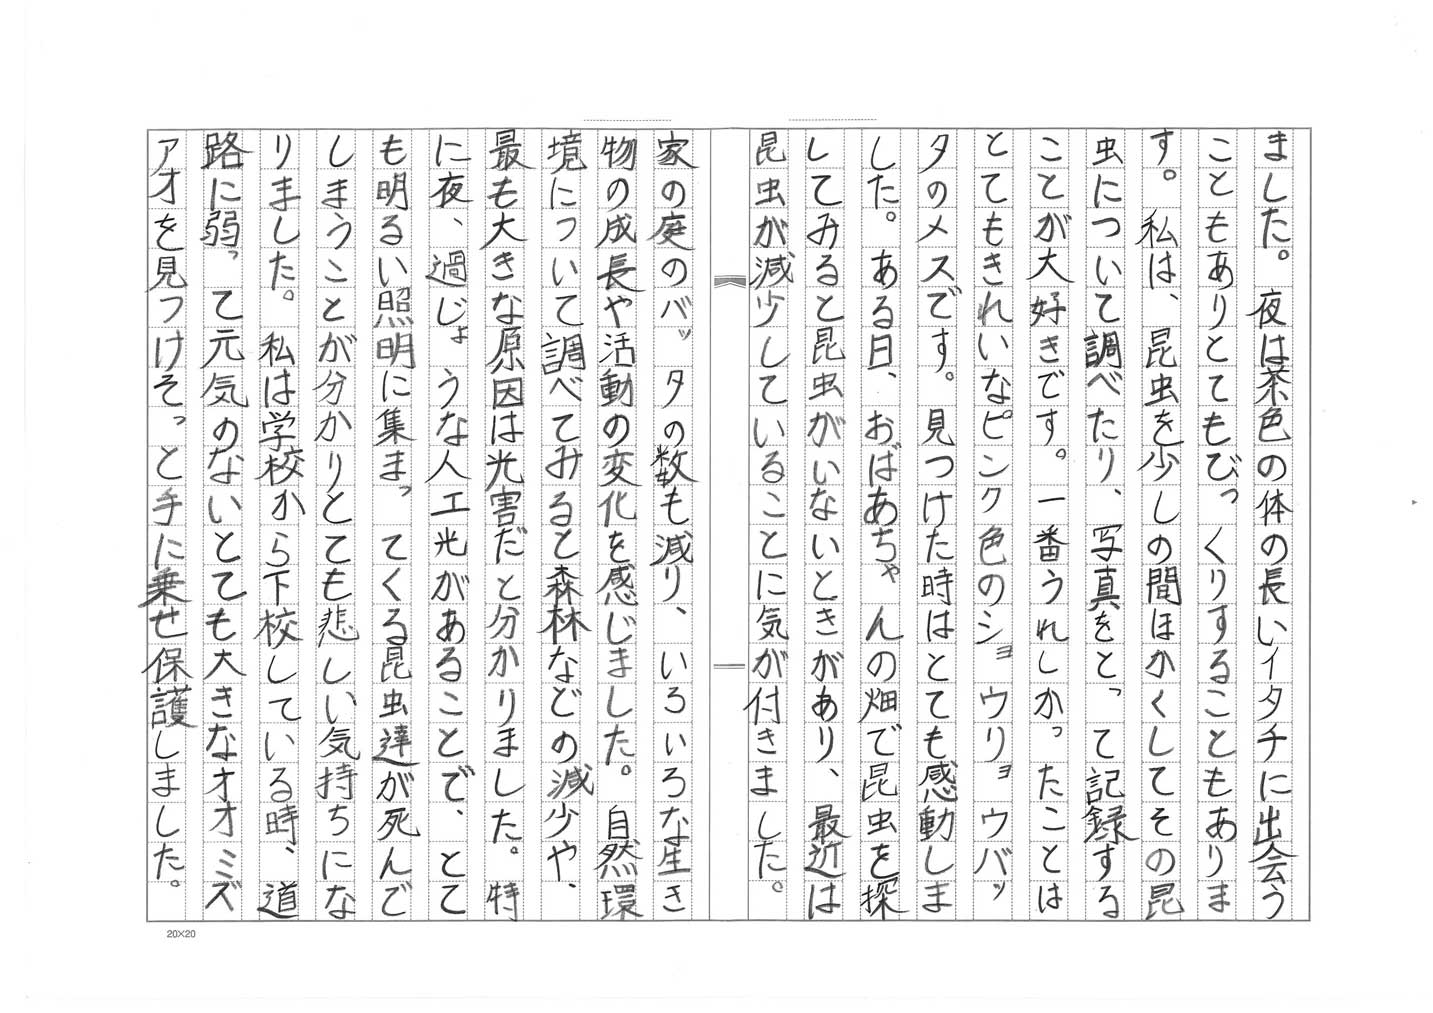 ました。夜は茶色の体の長いイタチに出会う
こともありとてもびっくりすることもありま
す。私は、昆虫を少しの間ほかくしてその昆
虫について調べたり、写真をとって記録する
ことが大好きです。一番うれしかったことは
とてもきれいなピンク色のショウリョウバッ
タのメスです。見つけた時はとても感動しま
した。ある日、おばあちゃんの畑で昆虫を探
してみると昆虫がいないときがあり、最近は
昆虫が減少していることに気が付きました。
家の庭のバッタの数も減り、いろいろな生き
物の成長や活動の変化を感じました。自然環
境について調べてみると森林などの減少や、
最も大きな原因は光害だと分かりました。特
に夜、過じょうな人工光があることで、とて
も明るい照明に集まってくる昆虫達が死んで
しまうことが分かりとても悲しい気持ちにな
りました。私は学校から下校している時、道
路に弱って元気のないとても大きなオオミズ
アオを見つけそっと手に乗せ保護しました。
20×20